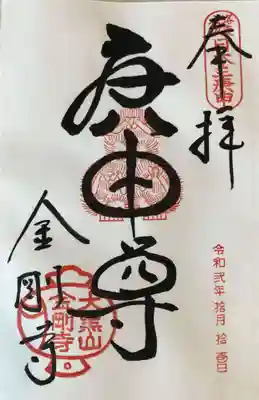 奉拝
庚申尊
令和弐年 拾月 拾壱日
金剛寺
大黒山
金剛寺